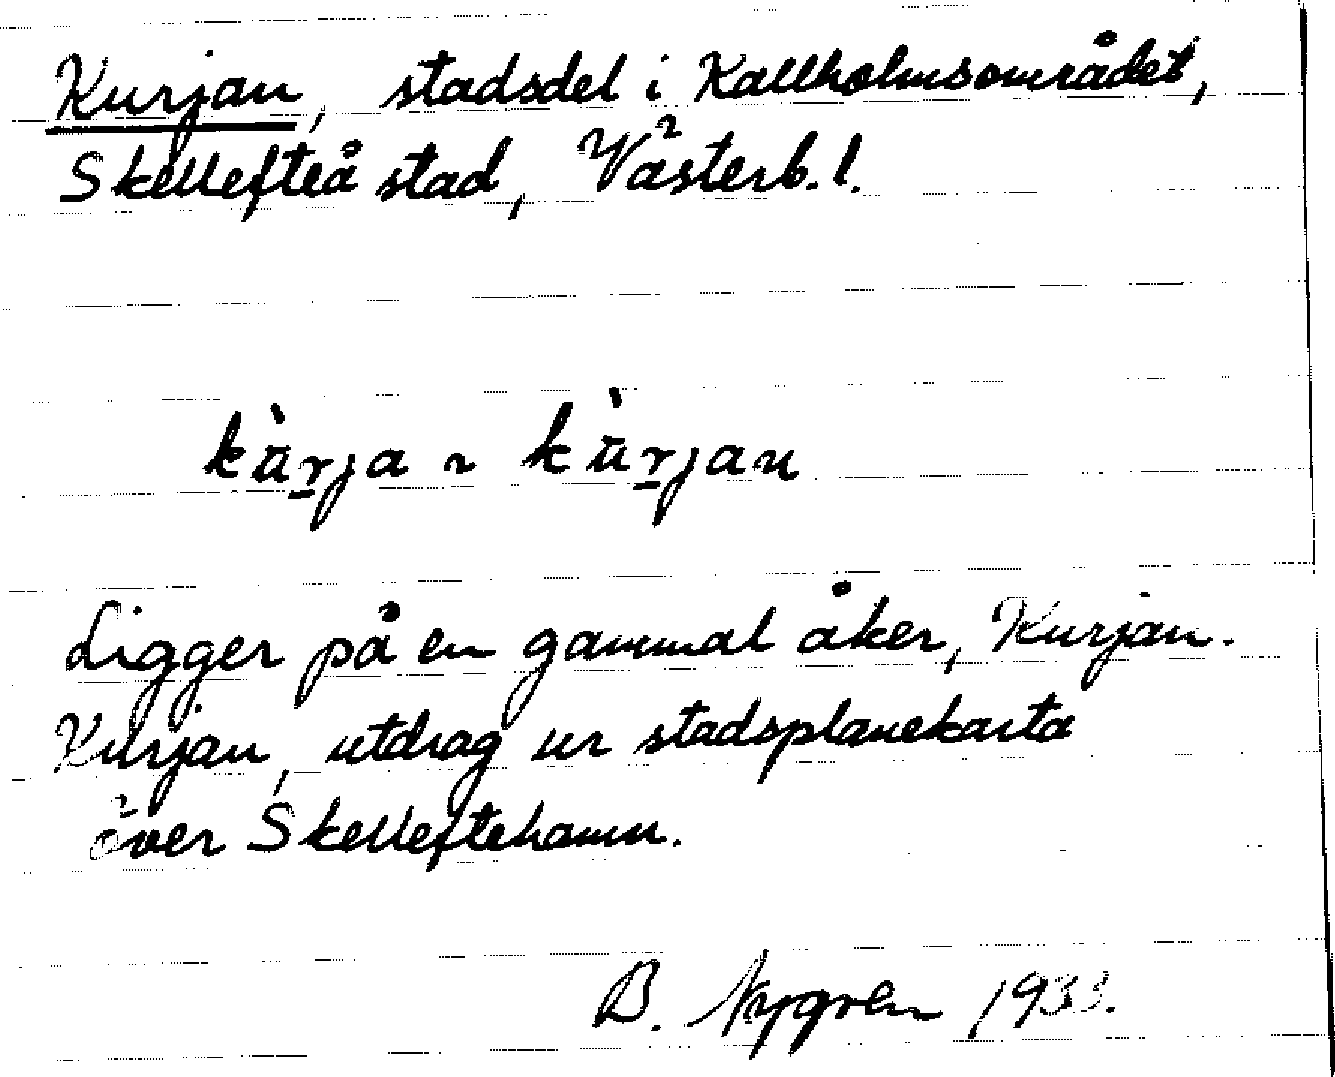 Kurjan, stadsdel i Kallholmsområdet,
Skellefteå stad, Västerb. l.
kùr̲ja ~ kùr̲jan
Ligger på en gammal åker, Kurjan.
Kurjan, utdrag ur stadsplanekarta
över Skelleftehamn.
B. Nygren 1933.